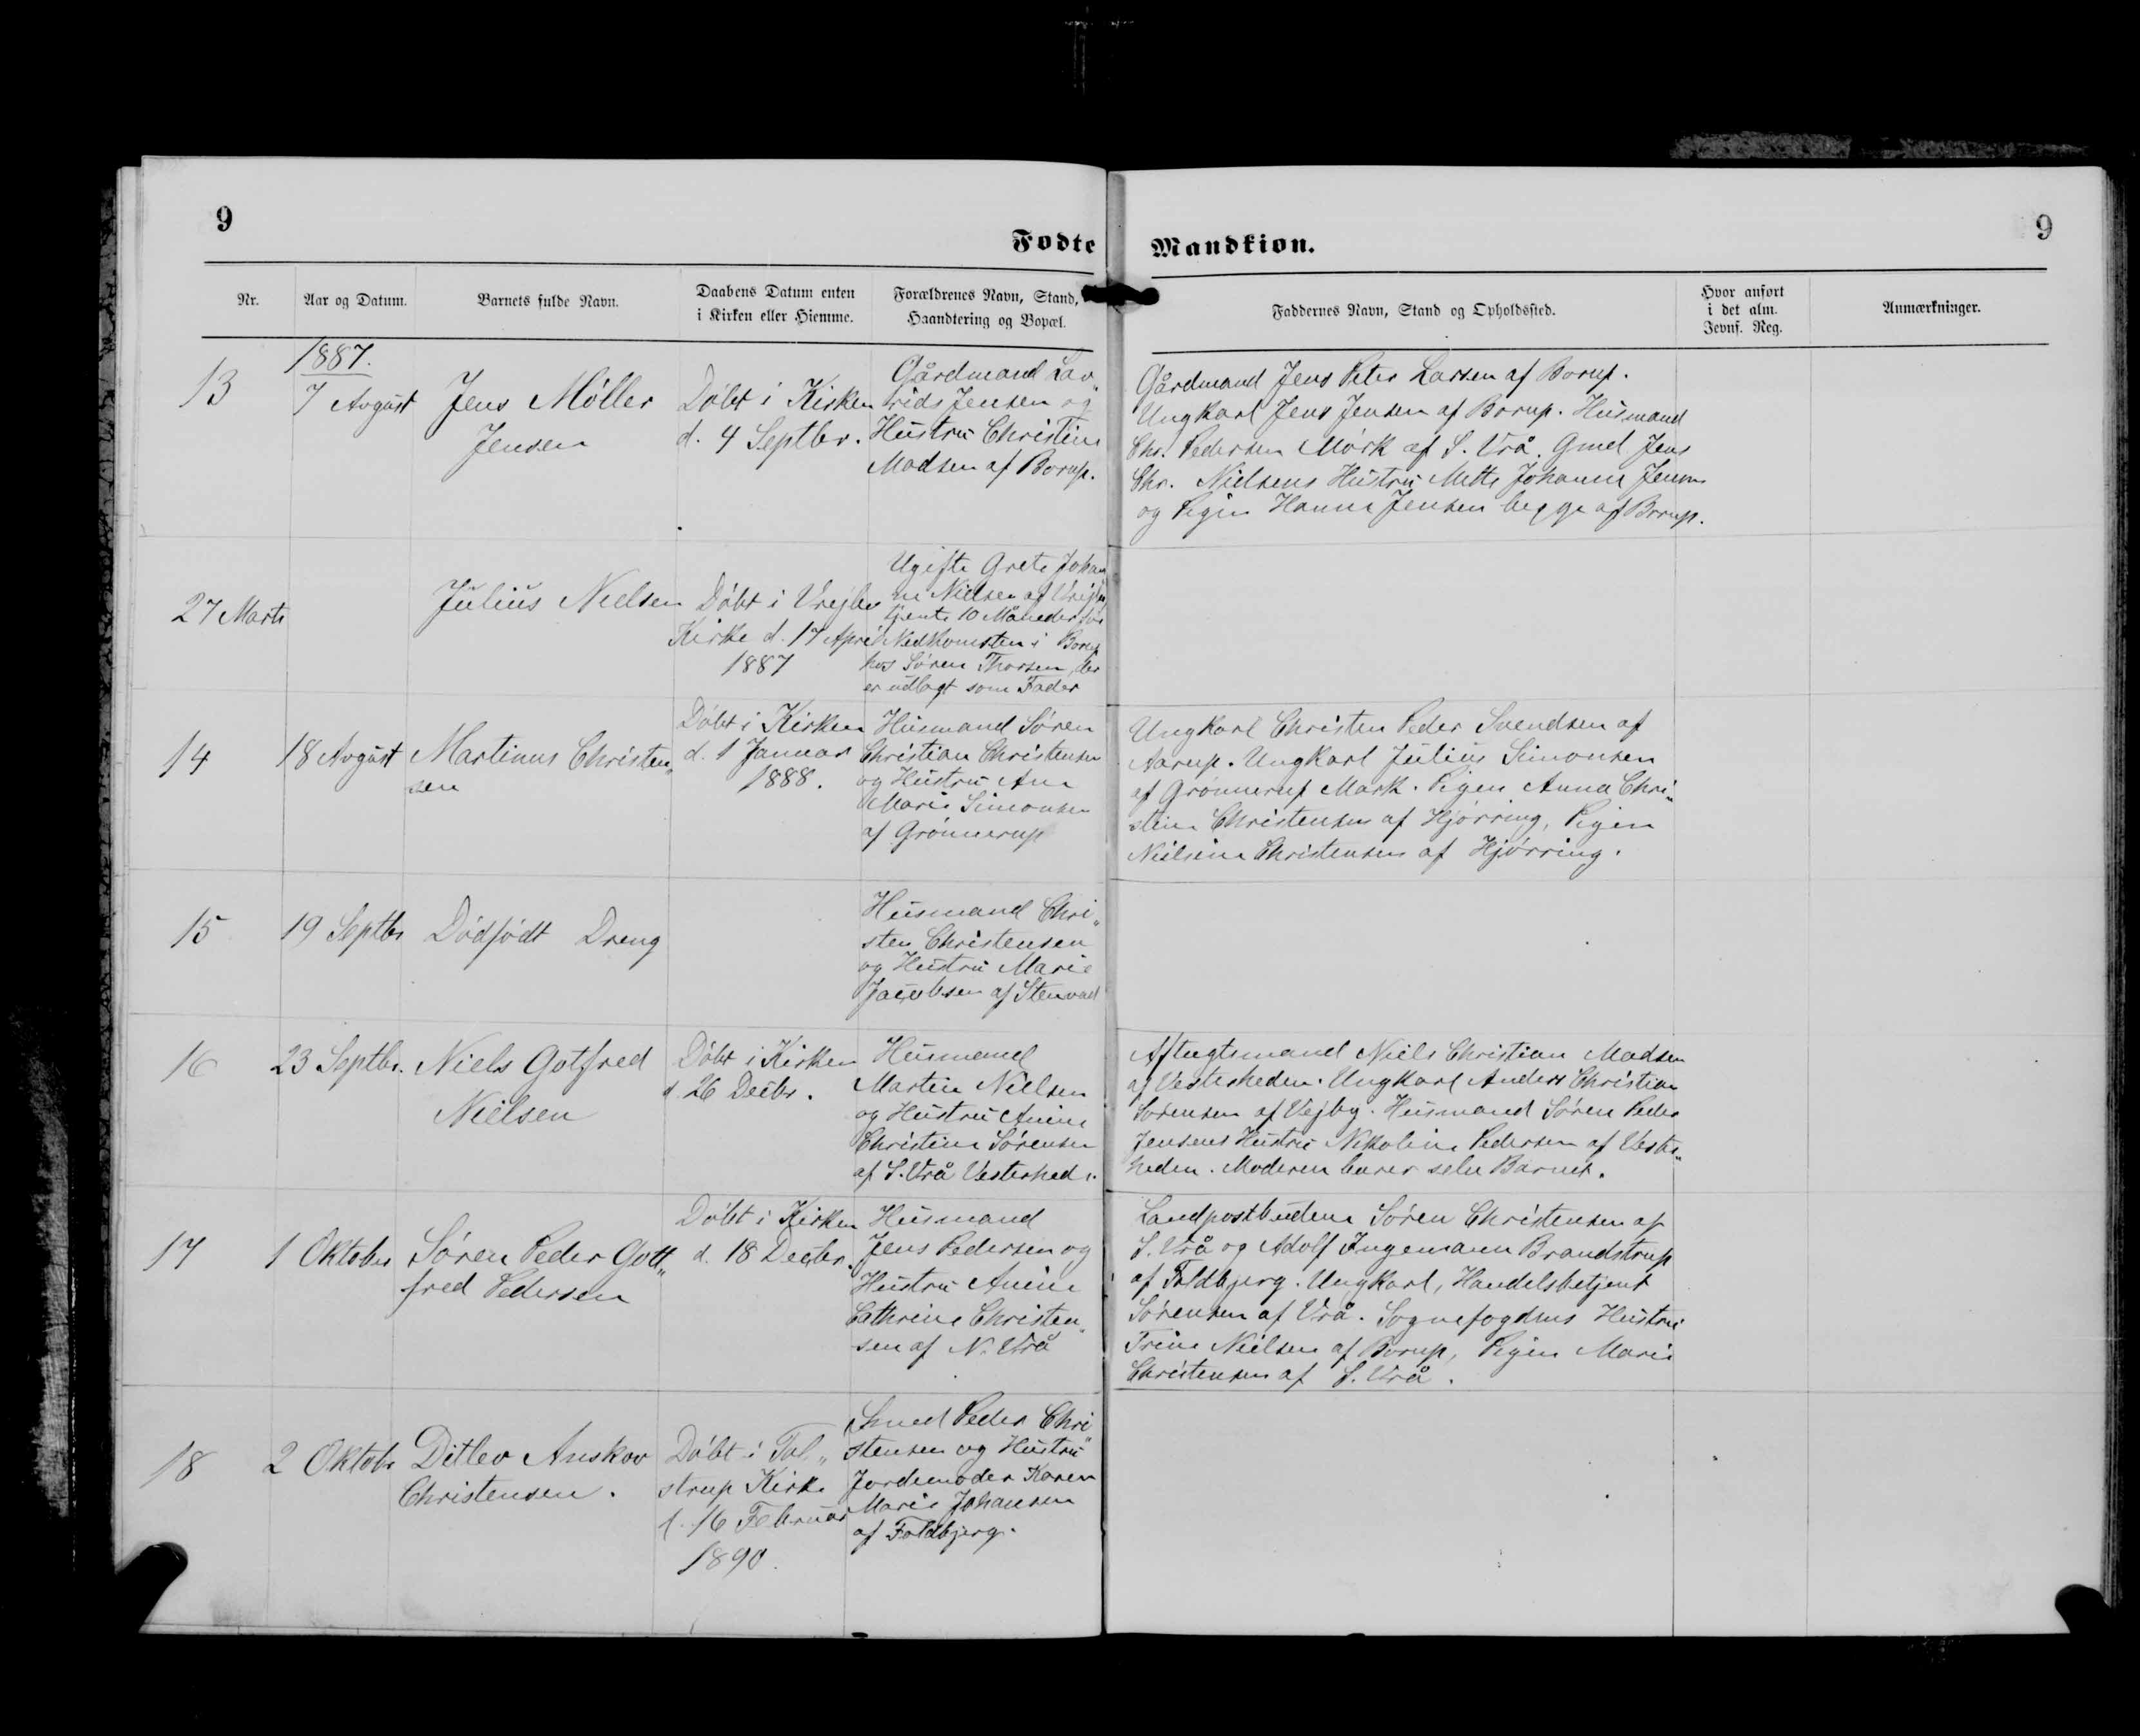 9
Fødte
Mandkion.
9
Nr.
Aar og Datum.
Barnets fulde Navn.
Daabens Datum enten
i Kirken eller Hiemme.
Forældrenes Navn, Stand,
Haandtering og Bopæl.
Faddernes Navn, Stand og Opholdssted.
Hvor anført
i det alm.
Jevnf. Reg.
Anmærkninger.
1887.
13
7 Avgust
Jens Møller
Jensen
Døbt i Kirken
d. 4 Septbr.
Gårdmand Lav„
rids Jensen og
Hustru Christine
Madsen af Borup.
Gårdmand Jens Peter Larsen af Borup.
Ungkarl Jens Jensen af Borup. Husmand
Chr. Pedersen Mørk af S. Vrå. Gmd. Jens
Chr. Nielsens Hustru Mette Johanne Jensen
og Pigen Hanne Jensen begge af Borup.
27 Marts
Julius Nielsen
Døbt i Vrejlev
Kirke d. 17 April
1887
Ugifte Grete Johan
ne Nielsen af
tjente 10 Måneder før
Nedkomsten i Borup
hos Søren Thorsen, der
er udlagt som Fader
14
18 Avgust
Martinus Christen„
sen
Døbt i Kirken
d. 1 Januar
1888.
Husmand Søren
Christian Christensen
og Hustru Ane
Marie Simonsen
af Grønnerup
Ungkarl Christen Peder Svendsen af
Aarup. Ungkarl Julius Simonsen
af Grønnerup Mark. Pigen Anna Chri„
stine Christensen af Hjørring, Pigen
Nielsine Christensen af Hjørring.
15
19 Septbr
Dødfødt Dreng
Husmand Chri„
sten Christensen
og Hustru Marie
Jacobsen af Stenvad
16
23 Septbr.
Niels Gotfred
Nielsen
Døbt i Kirken
d. 26 Decbr.
Husmand
Martin Nielsen
og Hustru Anine
Christine Sørensen
af S. Vrå Vesterhede.
Aftægtsmand Niels Christian Madsen
af Vesterheden. Ungkarl Anders Christian
Sørensen af Vejby. Husmand Søren Peder
Jensens Hustru Nikoline Pedersen af Vester„
heden. Moderen bærer selv Barnet.
17
1 Oktober
Søren Peder Gott„
fred Pedersen
Døbt i Kirken
d. 18 Decbr.
Husmand
Jens Pedersen og
Hustru Anine
Cathrine Christen„
sen af N. Vrå
Landpostbudene Søren Christensen af
S. Vrå og Adolf Ingemann Brandstrup
af Foldbjerg. Ungkarl, Handelsbetjent
Sørensen af Vrå. Sognefogdens Hustru
Trine Nielsen af Borup, Pigen Marie
Christensen af S. Vrå.
18
2 Oktobr
Ditlev Anskov
Christensen.
Døbt i Tol„
strup Kirke
d. 16 Februar
1890.
Smed Peder Chri„
stensen og Hustru
Jordemoder Karen
Marie Johansen
af Foldbjerg.